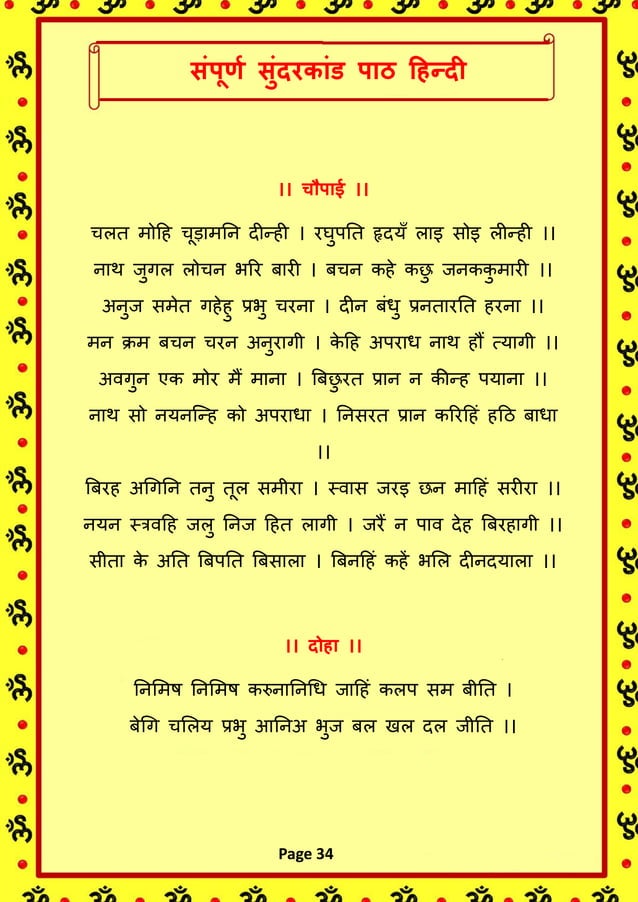 संपूर्ण सुंदरकांड पाठ हिन्दी
।। चौपाई ।।
चलत मोहि चूड़ामनि दीन्ही । रघुपति हृदयँ लाइ सोइ लीन्ही ।।
नाथ जुगल लोचन भरि बारी । बचन कहे कछु जनककुमारी ।।
अनुज समेत गहेहु प्रभु चरना । दीन बंधु प्रनतारति हरना ।।
मन क्रम बचन चरन अनुरागी । केहि अपराध नाथ हौं त्यागी ।।
अवगुन एक मोर मैं माना । बिछुरत प्रान न कीन्ह पयाना ।।
नाथ सो नयनन्हि को अपराधा । निसरत प्रान करिहिं हठि बाधा
।।
बिरह अगिनि तनु तूल समीरा । स्वास जरइ छन माहिं सरीरा ।।
नयन स्त्रवहि जलु निज हित लागी । जरैं न पाव देह बिरहागी ।।
सीता के अति बिपति बिसाला । बिनहिं कहें भलि दीनदयाला ।।
।। दोहा ।।
निमिष निमिष करुनानिधि जाहिं कलप सम बीति ।
बेगि चलिय प्रभु आनिअ भुज बल खल दल जीति ।।
Page 34